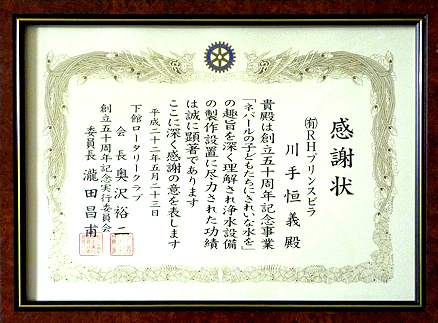 感謝状
㈲RHプリンスビラ
川手恒義殿
貴殿は創立五十周年記念事業
「ネパールの子どもたちにきれいな水を」
の趣旨を深く理解され浄水設備
の製作設置に尽力された功績
は誠に顕著であります
ここに深く感謝の意を表します
平成二十二年五月二十三日
下館ロータリークラブ
会長 奥沢裕二
創立五十周年記念実行委員会
委員長 瀧田昌甫